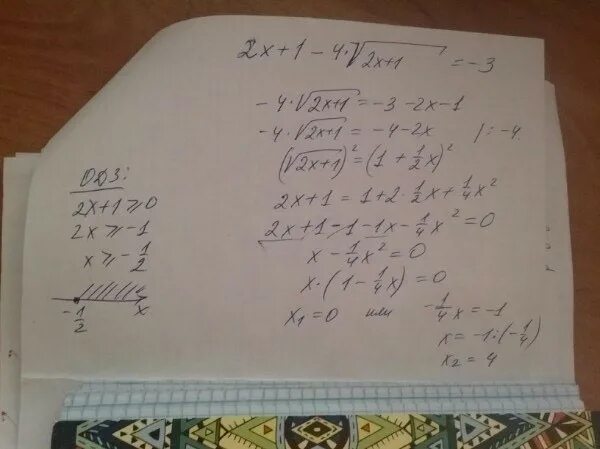 2x+1-4·√2x+1 = -3
-4·√2x+1 = -3-2x-1
-4·√2x+1 = -4-2x /:-4
(√2x+1)² = (1+1/2x)²
2x+1 = 1+2·1/2x+1/4x²
2x+1-1-1x-1/4x² = 0
x-1/4x² = 0
x·(1-1/4x) = 0
x₁=0 или -1/4x = -1
x = -1:(-1/4)
x₂ = 4
ОДЗ:
2x+1⩾0
2x⩾-1
x⩾-1/2
-1/2 x